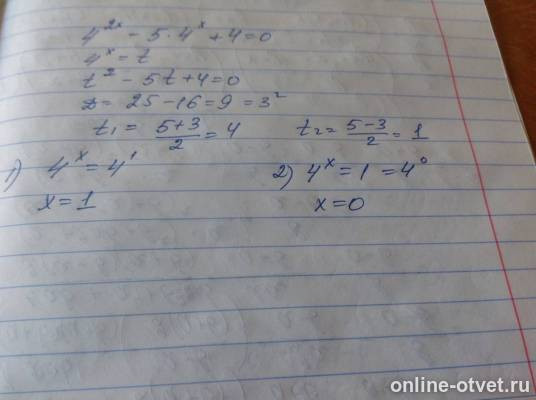 4^{2x} - 5 · 4^x + 4 = 0
4^x = t
t^2 - 5t + 4 = 0
D = 25 - 16 = 9 = 3^2
t_1 = \frac{5+3}{2} = 4   t_2 = \frac{5-3}{2} = 1
1) 4^x = 4^1   2) 4^x = 1 = 4^0
x = 1   x = 0
online-otvet.ru